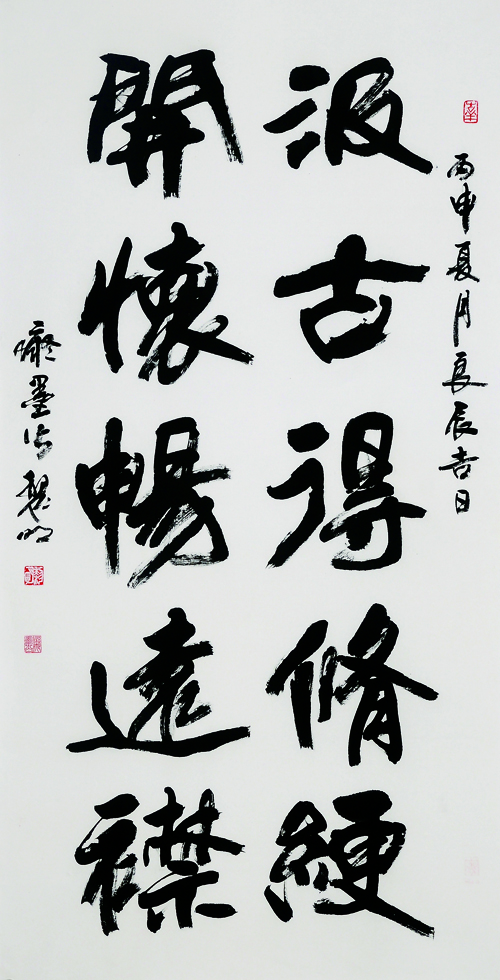 丙申夏月良辰吉日
汲古得脩綆
開懷暢遠襟
癡墨